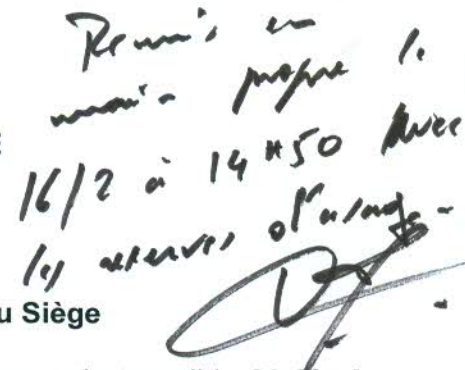 Remis en
main propre le
16/2 à 14H50 Avec
les réserves d'usage.
u Siège